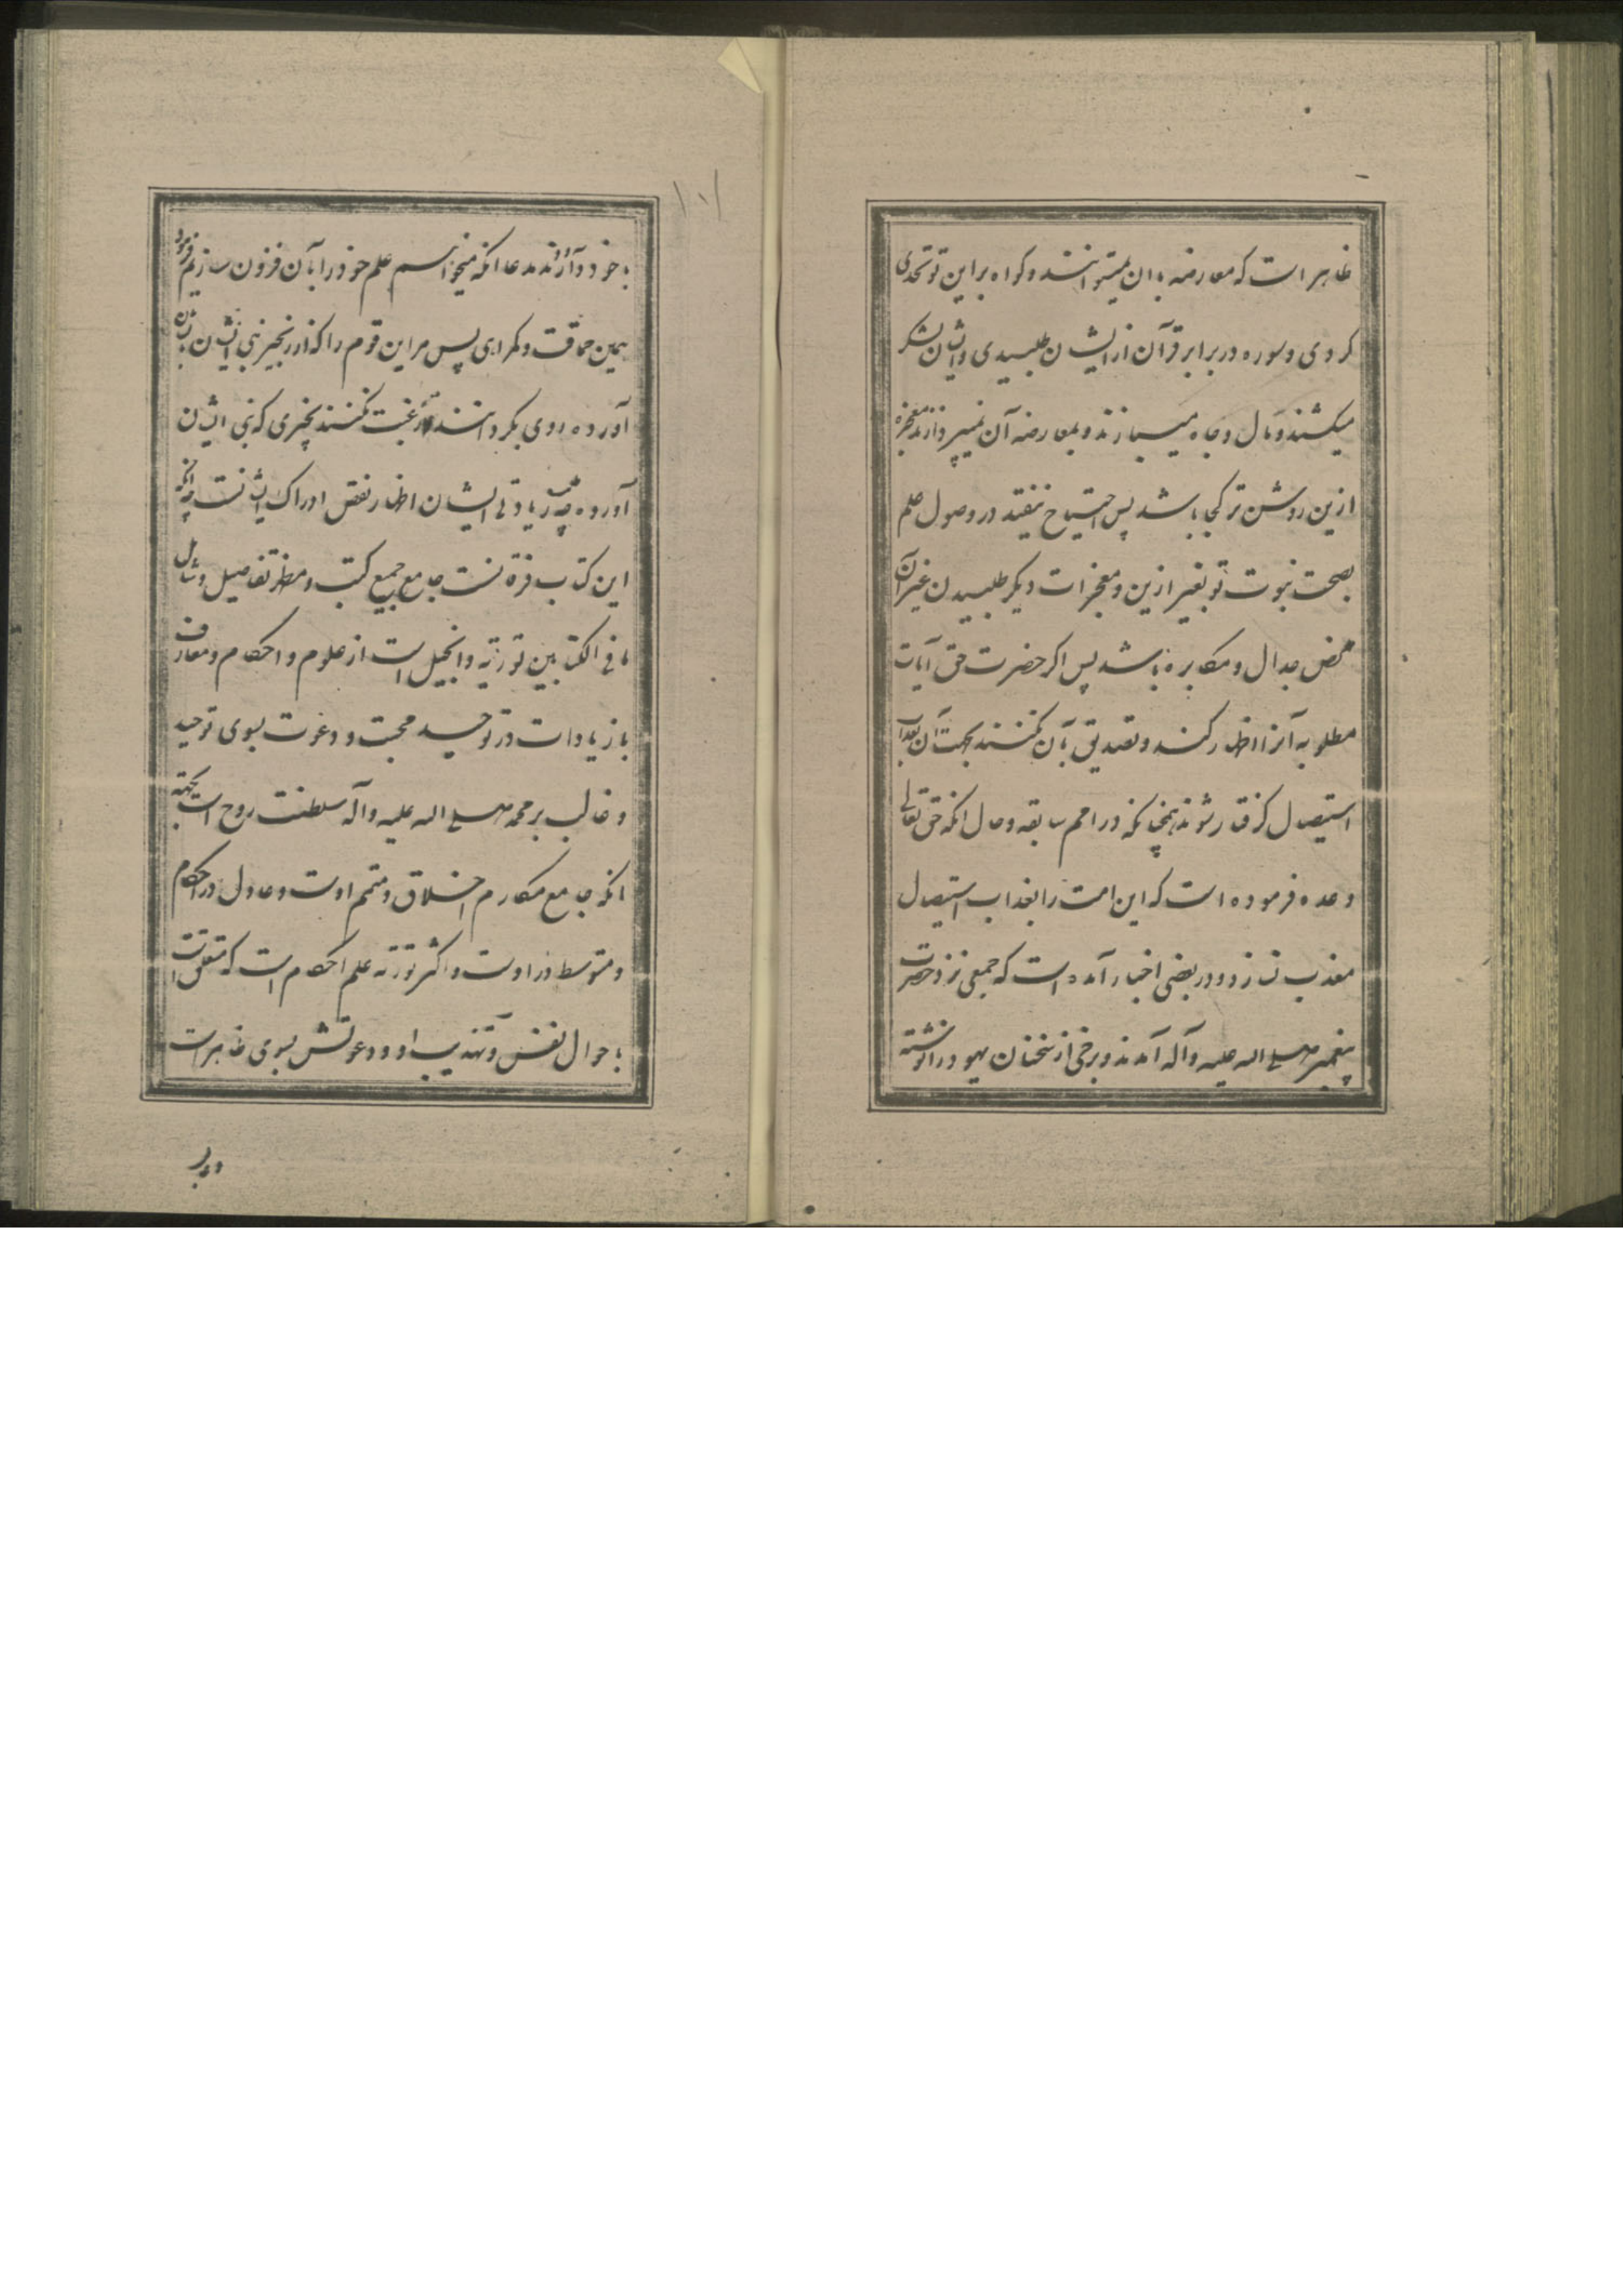 ظاهر است که معارضه با ان نمیتوانند و کواه بر این تو تحدی
کردی و سوره در برابر قرآن از ایشان طلبیدی و ایشان لشکر
میکشند و مال و جاه میبازند و بمعارضه آن نمیپردازند معجزه
ازین روشن تر کجا باشد پس احتیاج نیفتد در وصول علم
بصحت نبوت تو بغیر ازین و معجزات دیکر طلبیدن غیر آن
محض جدال و مکابره باشد پس اکر حضرت حق آیات
مطلوبه آنرا اظهار کند و تصدیق بآن نکنند بجهت آن بعذاب
استیصال کرفتار شوند همچنانکه در امم سابقه و حال انکه حق تعالی
وعده فرموده است که این امت را بعذاب استیصال
معذب نسازد و در بعضی اخبار آمده است که جمعی نزد حضرت
پیغمبر صلی الله علیه وآله آمدند و برخی از سخنان یهود در انوشته
۱۰۱
با خود آوردند بمدعا انکه میخواهیم علم خود را بآن فزون سازیم فرمود
بهمین حماقت و کمراهی پس مر این قوم را که از آنچیز نبی ایشان بایشان
آورده روی بکردانند و رغبت کنند بچیزی که نبی ایشان
آورده چه زیادتی ایشان اظهار نقص ادراک ایشانست چه انکه
این کتاب فرقانست جامع جمیع کتب و مظهر تفاصیل و شامل
ما فی الکتابین توریة و انجیل است از علوم و احکام و معارف
با زیادات در توحید محبت و دعوت بسوی توحید
و غالب بر محمد صلی الله علیه واله سلطنت روح است بجهته
انکه جامع مکارم اخلاق و متمم اوست و عادل در احکام
و متوسط در اوست و اکثر توریة علم احکام است که متعلق است
باحوال نفس و تهذیب او و دعوتش بسوی ظاهر است